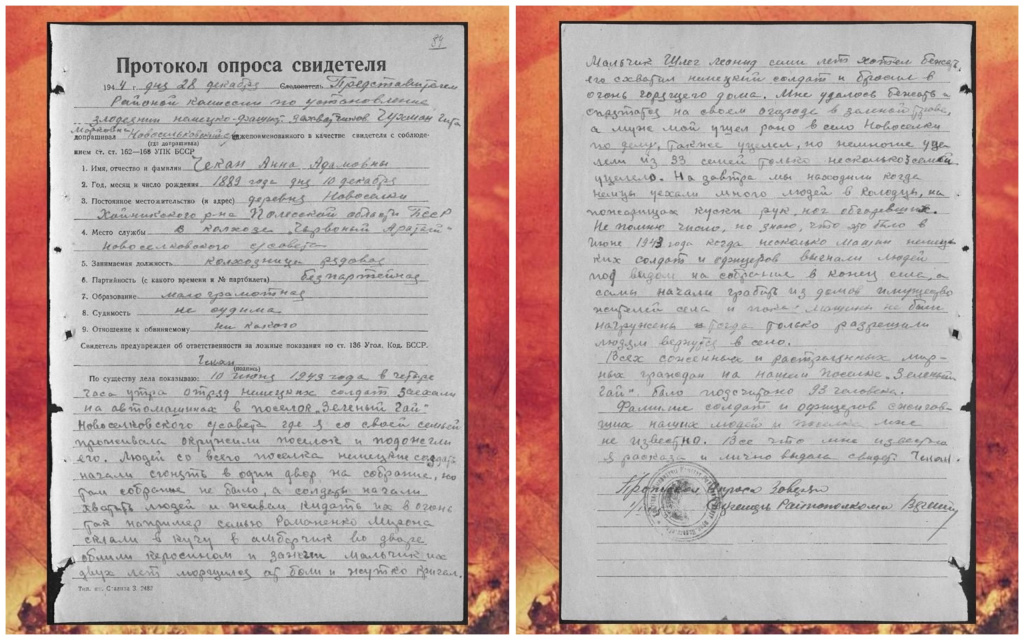 84
Протокол опроса свидетеля
1944 г. дня 28 декабря Следователь Представителем
Районой комиссии по установлению
злодеяни немецко-фашит. захватчиков Гузман Гита
Марковна
допрашивал Новоселковский с/с нижепоименованного в качестве свидетеля с соблюде-
(где допрашивал)
нием ст. ст. 162—168 УПК БССР
1. Имя, отчество и фамилия Чекан Анна Адамовны
2. Год, месяц и число рождения 1889 года дня 10 декабря
3. Постоянное местожительство (и адрес) деревня Новоселки
Хойникского р-на Полесской области БССР
4. Место службы в колхозе "Червоный Аратый"
Новоселковского с/совета
5. Занимаемая должность колхозница рядовая
6. Партийность (с какого времени и № партбилета) безпартейная
7. Образование мало грамотная
8. Судимость не судима
9. Отношение к обвиняемому ни какого
Свидетель предупрежден об ответственности за ложные показания по ст. 136 Угол. Код. БССР.
Чекан
(подпись)
По существу дела показываю: 10 июня 1943 года в четыре
часа утра отряд немецких солдат заехали
на автомашинах в поселок "Зеленый Гай"
Новоселковского с/совета где я со своей семьей
проживала окружили поселок и подожгли
его. Людей со всего поселка немецкие солдаты
начали сгонять в один двор на собрание, но
там собрание не было, а солдаты начали
хватать людей и живем кидать их в огонь
так например семью Романенко Мирона
согнали в кучу в амбарчик во дворе
облили керосином и зажгли мальчик их
двух лет морщился от боли и жутко кричал.
Тип. им. Сталина З. 2487
Мальчик Шлег Леонид семи лет хотел бежать,
его схватил немецкий солдат и бросил в
огонь горящего дома. Мне удалось бежать и
спрятатся на своем огороде в зеленой траве,
а муж мой ушел рано в село Новоселки
по делу, также уцелел, но немногие уце-
лели из 33 семей только несколько семей
уцелело. На завтра мы находили когда
немцы уехали много людей в колодцы, на
пожарищах куски рук, ног обгоревших.
Не помню число, но знаю, что это было в
Июне 1943 года когда несколько машин немец-
ких солдат и офицеров выгнали людей
под видом на собрания в конец села, а
сами начали грабить из домов имущество
жителей села и пока машины не были
нагружены и тогда только разрешали
людям вернутся в село.
Всех сожженных и растрелянных мир-
ных граждан на нашем поселке "Зеленый
Гай" было подсчитано 93 человека.
Фамилие солдат и офицеров сжигав-
ших наших людей и поселка мне
не известно. Все что мне известно
я рассказа и лично видела свидет. Чекан.
Протокол опроса заверяю